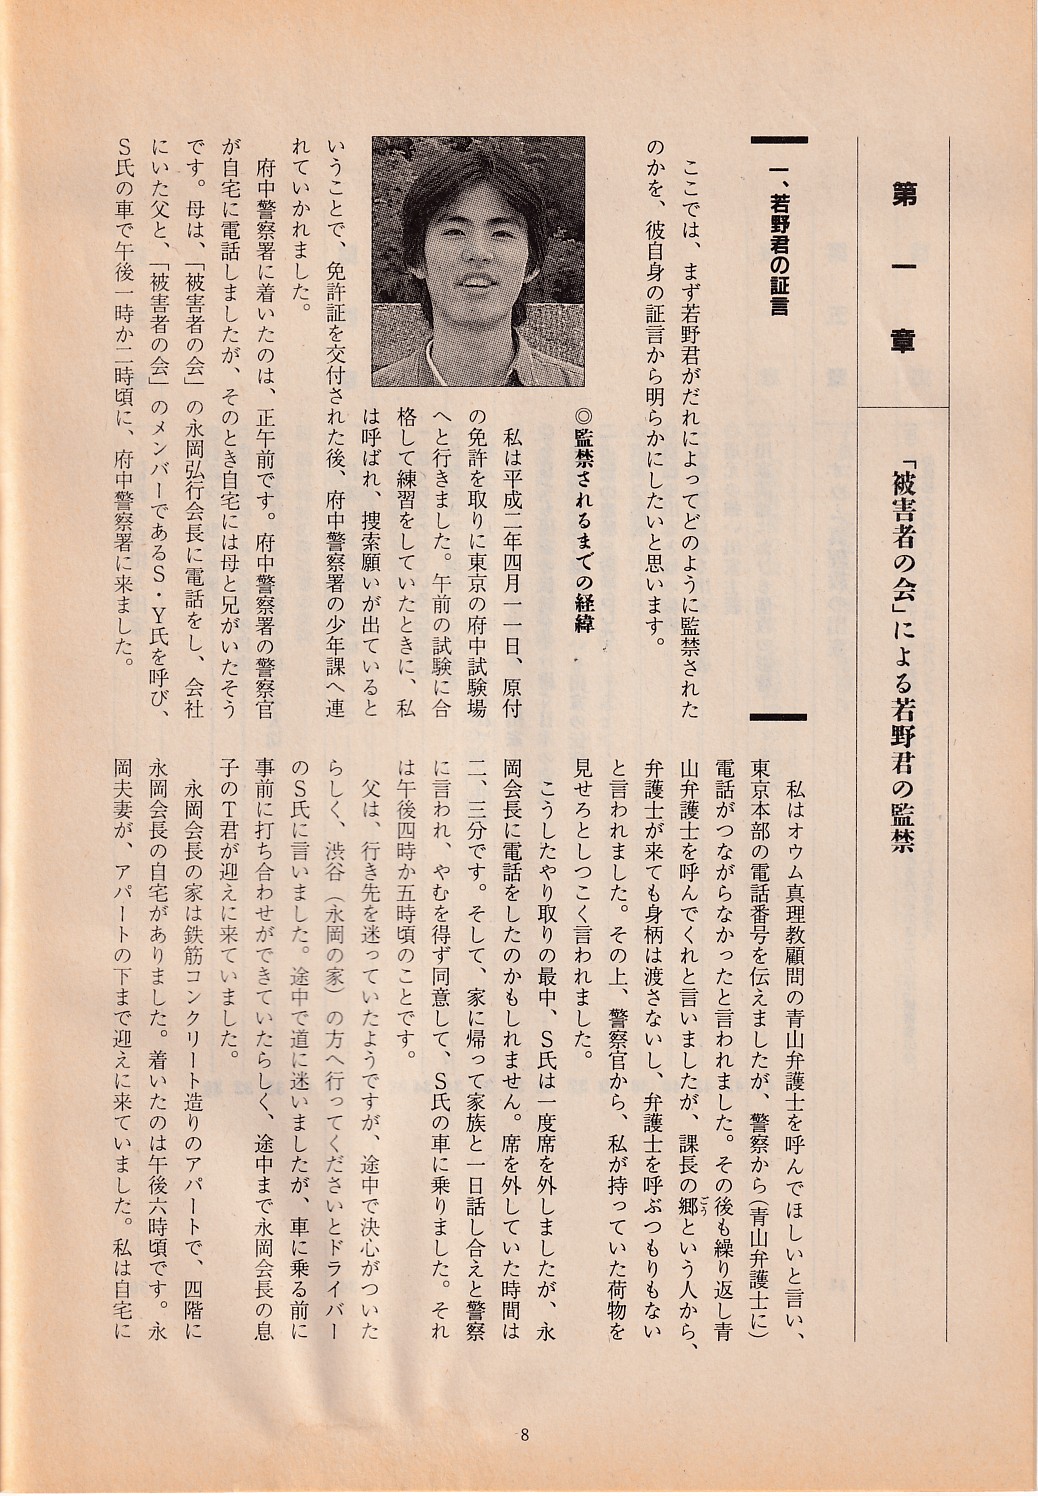 第一章
「被害者の会」による若野君の監禁
一、若野君の証言
ここでは、まず若野君がだれによってどのように監禁された
のかを、彼自身の証言から明らかにしたいと思います。
◎監禁されるまでの経緯
私は平成二年四月一一日、原付
の免許を取りに東京の府中試験場
へと行きました。午前の試験に合
格して練習をしていたときに、私
は呼ばれ、捜索願いが出ていると
いうことで、免許証を交付された後、府中警察署の少年課へ連
れていかれました。
府中警察署に着いたのは、正午前です。府中警察署の警察官
が自宅に電話しましたが、そのとき自宅には母と兄がいたそう
です。母は、「被害者の会」の永岡弘行会長に電話をし、会社
にいた父と、「被害者の会」のメンバーであるS・Y氏を呼び、
S氏の車で午後一時か二時頃に、府中警察署に来ました。
私はオウム真理教顧問の青山弁護士を呼んでほしいと言い、
東京本部の電話番号を伝えましたが、警察から(青山弁護士に)
電話がつながらなかったと言われました。その後も繰り返し青
山弁護士を呼んでくれと言いましたが、課長の郷ごうという人から、
弁護士が来ても身柄は渡さないし、弁護士を呼ぶつもりもない
と言われました。その上、警察官から、私が持っていた荷物を
見せろとしつこく言われました。
こうしたやり取りの最中、S氏は一度席を外しましたが、永
岡会長に電話をしたのかもしれません。席を外していた時間は
二、三分です。そして、家に帰って家族と一日話し合えと警察
に言われ、やむを得ず同意して、S氏の車に乗りました。それ
は午後四時か五時頃のことです。
父は、行き先を迷っていたようですが、途中で決心がついた
らしく、渋谷(永岡の家)の方へ行ってくださいとドライバー
のS氏に言いました。途中で道に迷いましたが、車に乗る前に
事前に打ち合わせができていたらしく、途中まで永岡会長の息
子のT君が迎えに来ていました。
永岡会長の家は鉄筋コンクリート造りのアパートで、四階に
永岡会長の自宅がありました。着いたのは午後六時頃です。永
岡夫妻が、アパートの下まで迎えに来ていました。私は自宅に
8